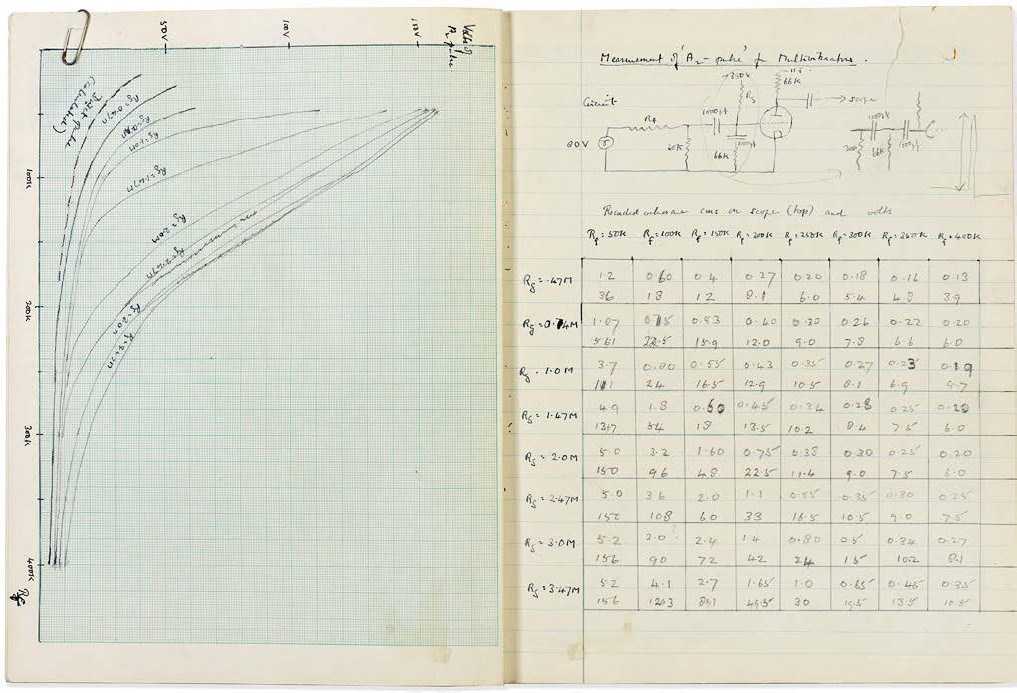 50V
100V
150V
Volts of
A₂ pulse
Direct Pulse
(calculated)
Rg=0.47M
Rg=1.0M
Rg=1.47M
Rg=2.0M
Rg=2.47M
100K
200K
300K
400K
Rf
Measurement of 'A₂-pulse' for Multivibrators.
Circuit
+350V
Rg
66K
1000pf
→ scope
Rf
20K
66K
66K
Recorded when are cms on scope (top) and volts
Rf=50K Rf=100K Rf=150K Rf=200K Rf=250K Rf=300K Rf=350K Rf=400K
Rg=.47M 1.2 0.60 0.4 0.27 0.20 0.18 0.16 0.13
36 18 12 8.1 6.0 5.4 4.8 3.9
1.07 0.75 0.53 0.40 0.30 0.26 0.22 0.20
22.5 15.9 12.0 9.0 7.8 6.6 6.0
Rg=1.0M 3.7 0.80 0.55 0.43 0.35 0.27 0.23 0.19
111 24 16.5 12.9 10.5 8.1 6.9 5.7
Rg=1.47M 4.9 1.8 0.60 0.45 0.34 0.28 0.25 0.20
54 18 13.5 10.2 8.4 7.5 6.0
Rg=2.0M 5.0 3.2 1.60 0.75 0.38 0.30 0.25 0.20
150 96 48 22.5 11.4 9.0 7.5 6.0
Rg=2.47M 5.0 3.6 2.0 1.1 0.55 0.35 0.30 0.25
150 108 60 33 16.5 10.5 9.0 7.5
Rg=3.0M 5.2 3.0? 2.4 1.4 0.80 0.5 0.34 0.27
156 90 72 42 24 15 10.2 8.1
Rg=3.47M 5.2 4.1 2.7 1.65 1.0 0.65 0.45 0.35
156 123 81 49.5 30 19.5 13.5 10.5